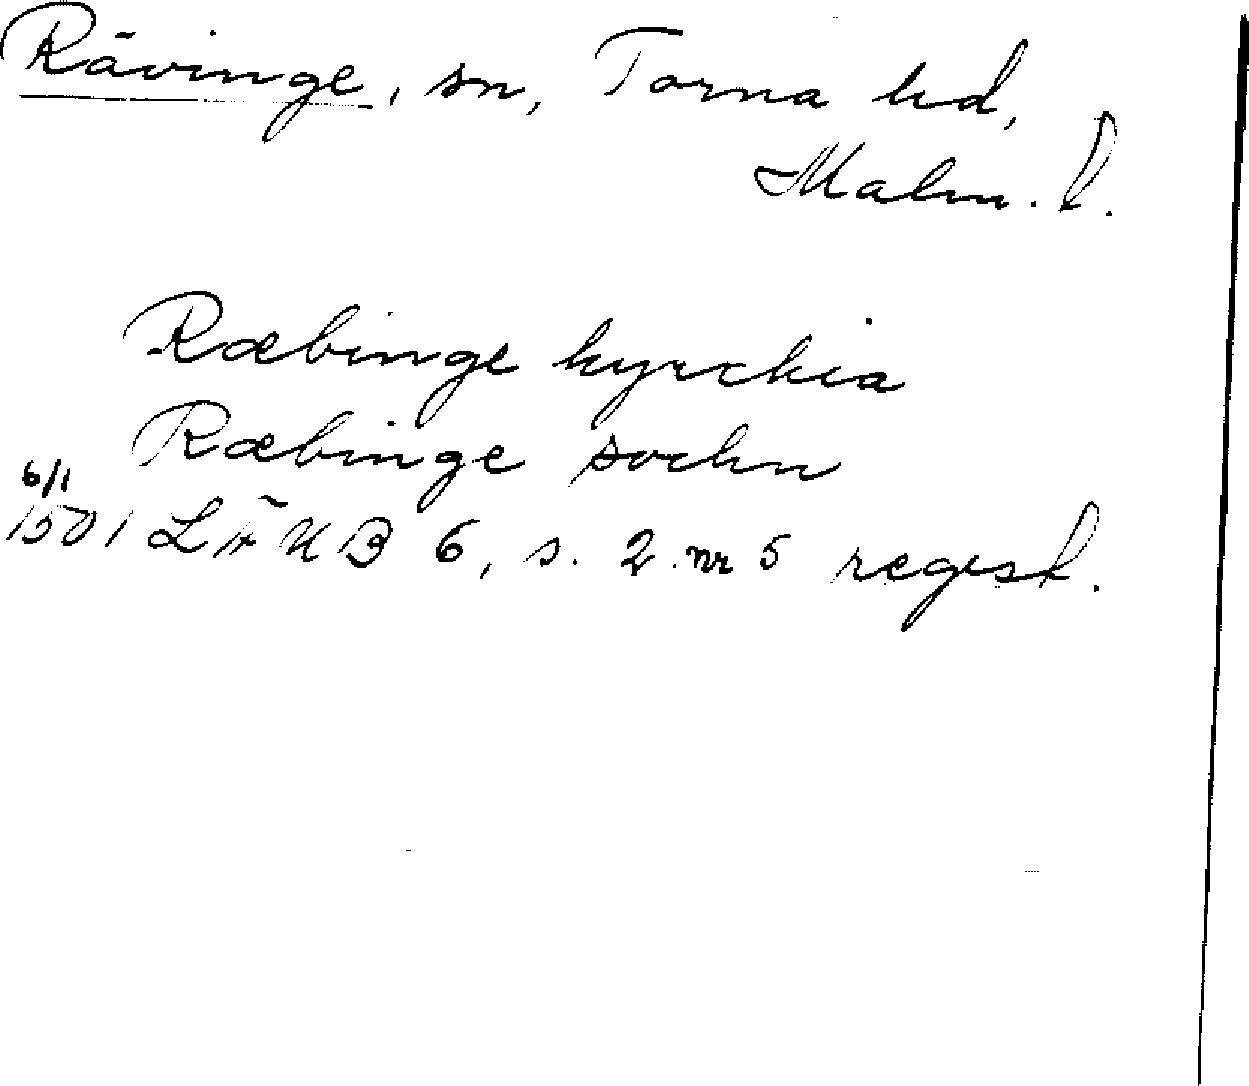 Rävinge, sn, Torna hd,
Malm. l.
Ræbinge kyrckia
Ræbinge sochn
6/1
1501 LÄUB 6, s. 2. nr 5 regest.